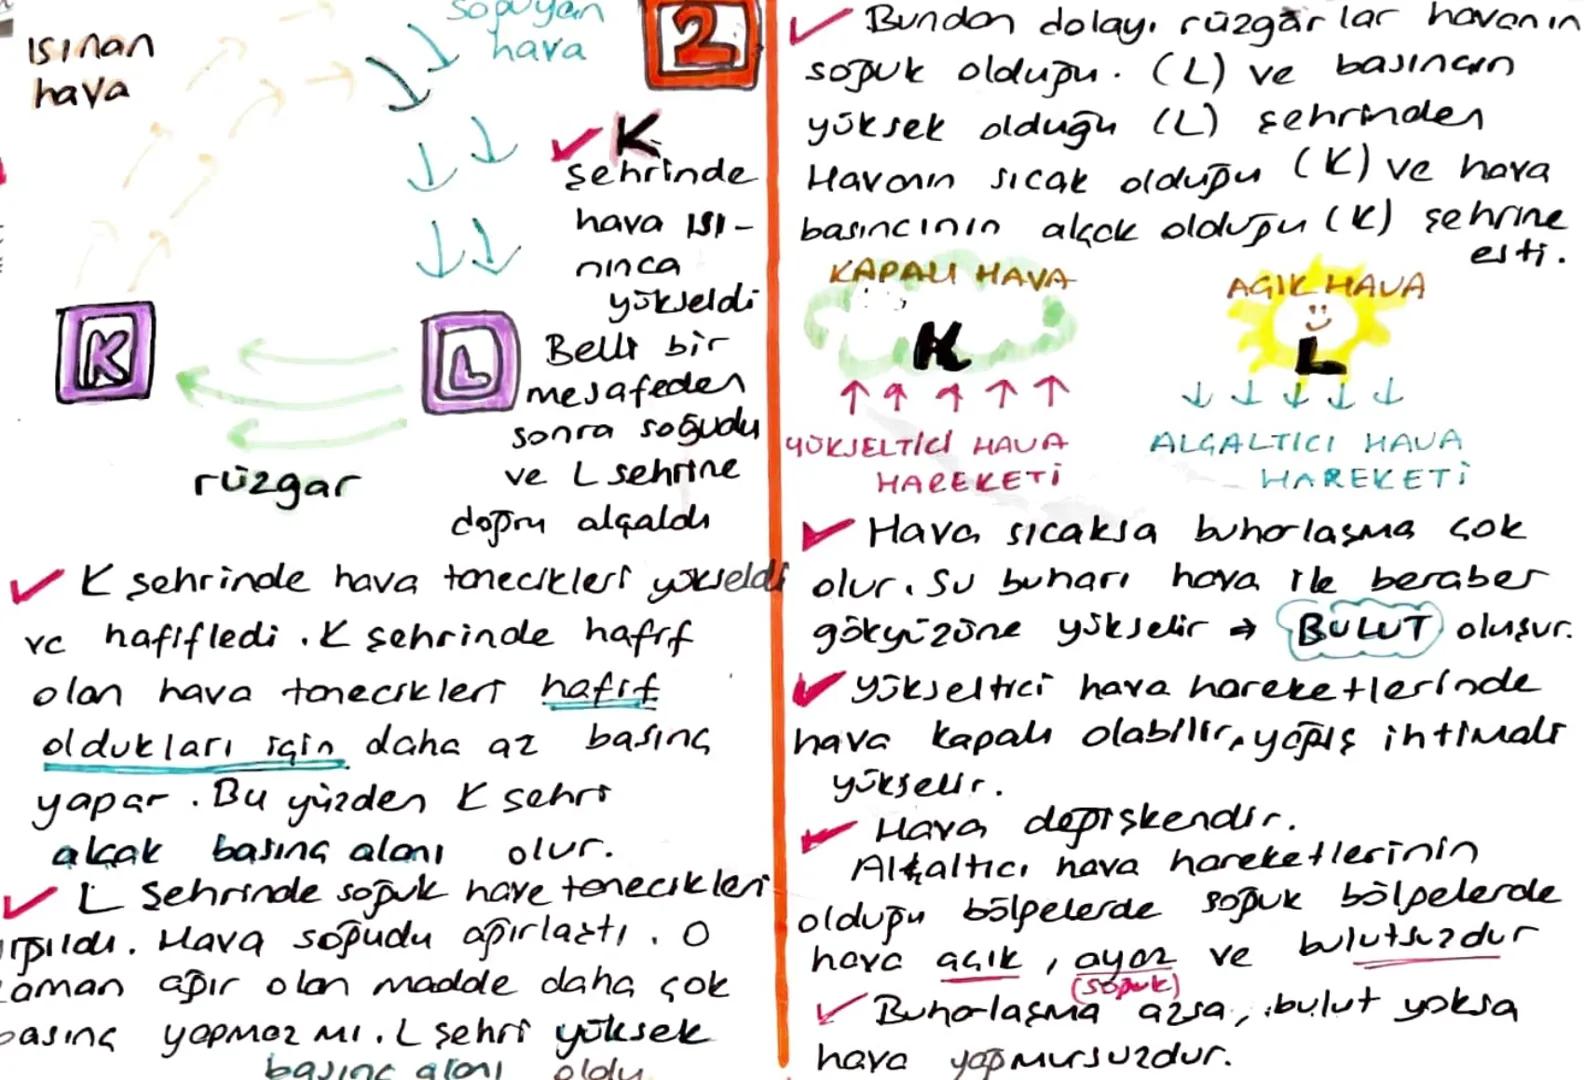 ısınan
hava
soğuyan
hava
2
✓ K
şehrinde
hava ısı-
nınca
yükseldi
Belli bir
mesafeden
sonra soğudu
ve L şehrine
doğru alçaldı
K
L
rüzgar
✓ K şehrinde hava tanecikleri yükseldi
ve hafifledi. K şehrinde hafif
olan hava tanecikleri hafif
oldukları için daha az basınç
yapar. Bu yüzden K şehri
alçak basınç alanı olur.
✓ L şehrinde soğuk hava tanecikleri
ığıldı. Hava soğudu ağırlaştı. O
zaman ağır olan madde daha çok
basınç yapmaz mı. L şehri yüksek
basınç alanı oldu
✓ Bundan dolayı rüzgarlar havanın
soğuk olduğu. (L) ve basıncın
yüksek olduğu (L) şehrinden
Havanın sıcak olduğu (K) ve hava
basıncının alçak olduğu (K) şehrine
esti.
KAPALI HAVA
K
YÜKSELTİCİ HAVA
HAREKETİ
AÇIK HAVA
L
ALÇALTICI HAVA
HAREKETİ
✓ Hava sıcaksa buharlaşma çok
olur. Su buharı hava ile beraber
gökyüzüne yükselir → BULUT oluşur.
✓ yükseltici hava hareketlerinde
hava kapalı olabilir, yağış ihtimali
yükselir.
✓ Hava değişkendir.
Alçaltıcı hava hareketlerinin
olduğu bölgelerde soğuk bölgelerde
hava açık, ayaz ve bulutsuzdur
(soğuk)
✓ Buharlaşma azsa, bulut yoksa
hava yağmursuzdur.